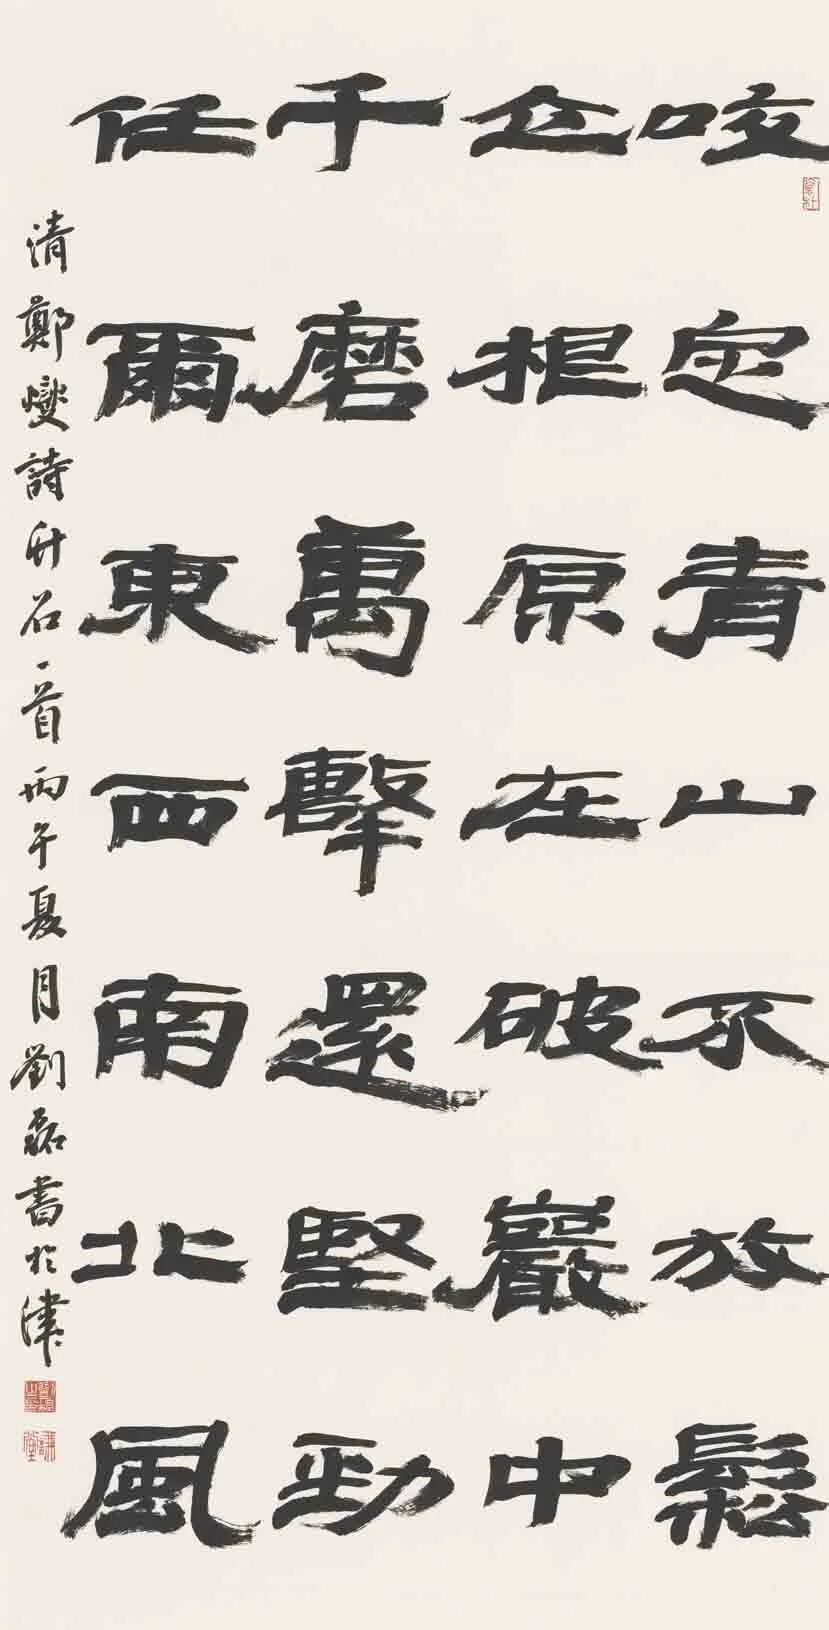 咬定青山不放鬆
立根原在破巖中
千磨萬擊還堅勁
任爾東西南北風
清鄭燮詩竹石一首丙午夏月劉磊書於津